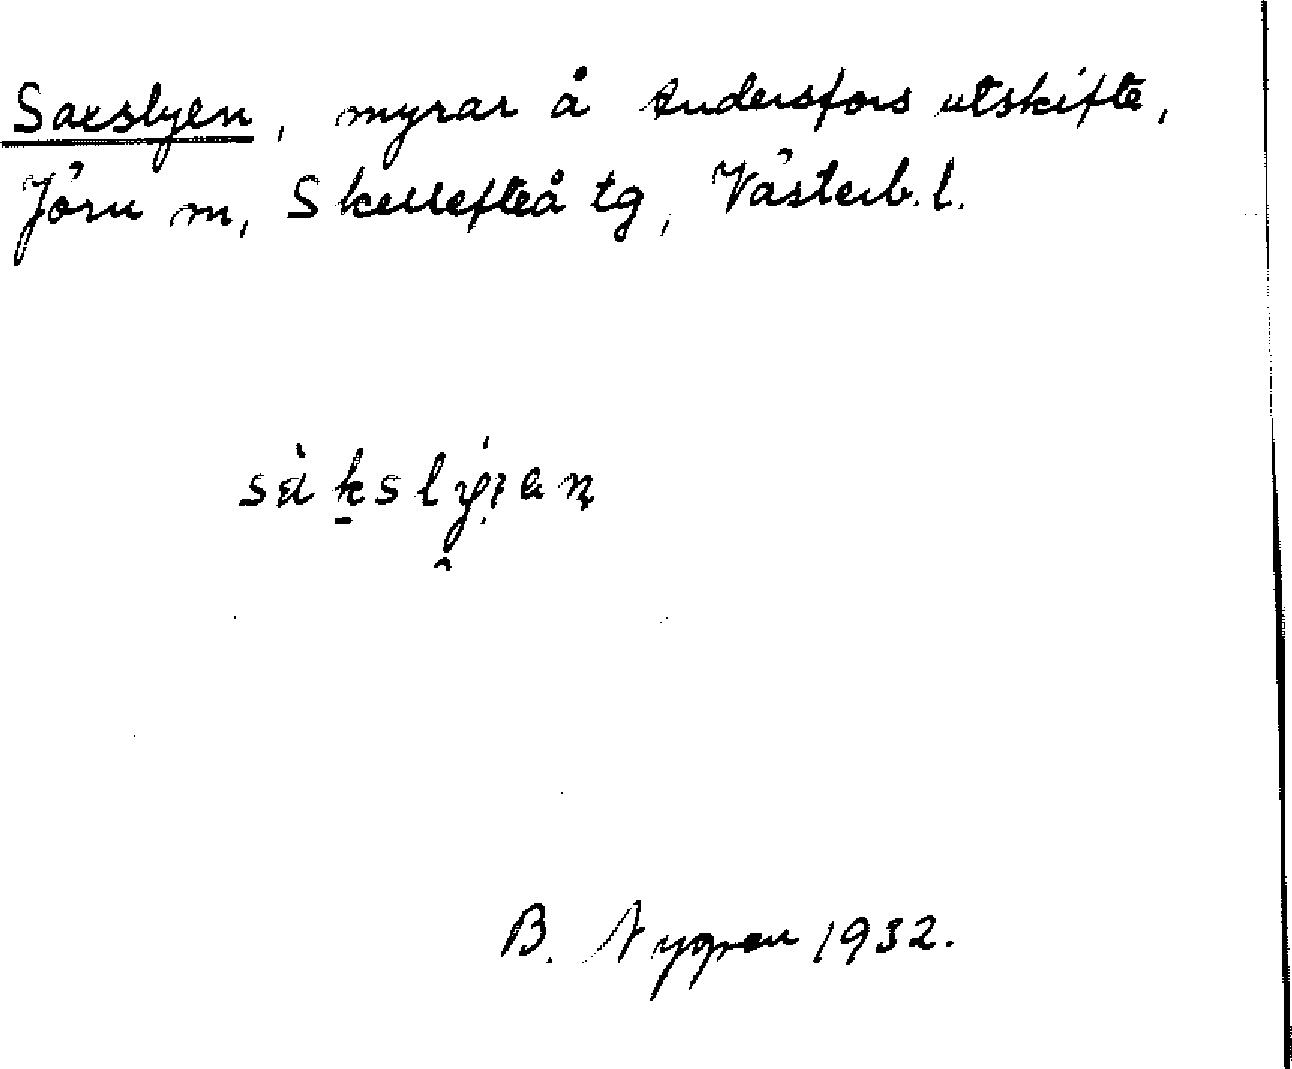 Saxslyen, myrar å Andersfors utskifte,
Jörn sn, Skellefteå tg, Västerb. l.
sàkslýi̯an
B. Nygren 1932.